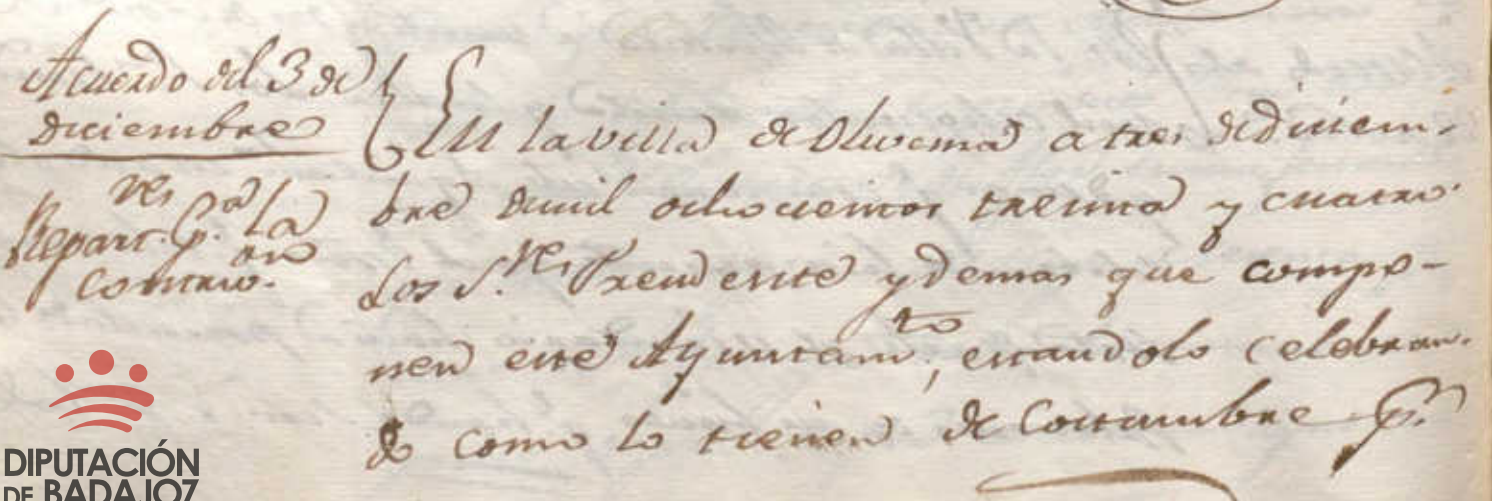 Acuerdo del 3 de
Diciembre
Repart.res p.a la
Contrib.on
En la villa de Olivenza a tres de diciem-
bre de mil ochocientos treinta y cuatro
Los S.res Presidente y demas que compo-
nen este Ayuntam.to, estandolo celebran-
do como lo tienen de Costumbre p.
DIPUTACIÓN
DE BADAJOZ